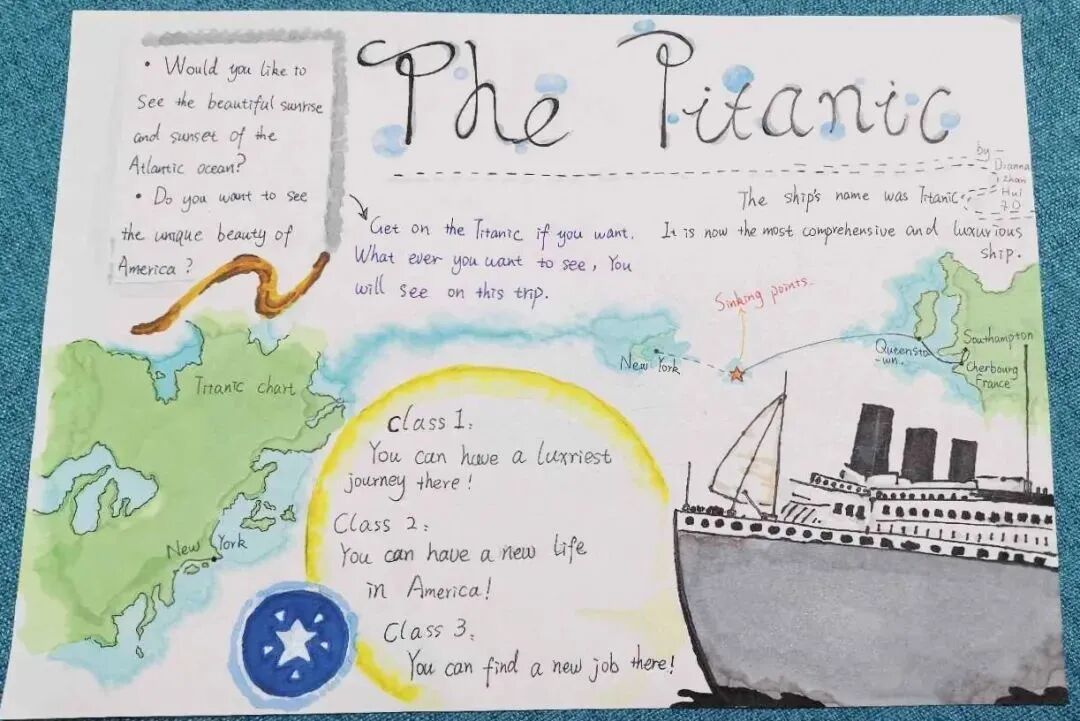 The Titanic
by -
Dianna
zhan
Hui
7D
• Would you like to
see the beautiful sunrise
and sunset of the
Atlantic ocean?
• Do you want to see
the unique beauty of
America ?
Get on the Titanic if you want.
What ever you want to see, You
will see on this trip.
The ship's name was Titanic.
It is now the most comprehensive and luxurious
ship.
Sinking points.
New York
Queensto
-wn.
Southampton
Cherbourg
France
Titanic chart
New York
Class 1:
You can have a luxriest
journey there!
Class 2:
You can have a new life
in America!
Class 3:
You can find a new job there!